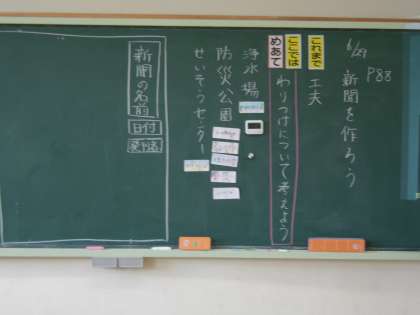 6/29
P88
新聞を作ろう
これまで
工夫
ここでは
めあて
わりつけについて考えよう
浄水場
防災公園
せいそうセンター
新聞の名前
日付
発行者